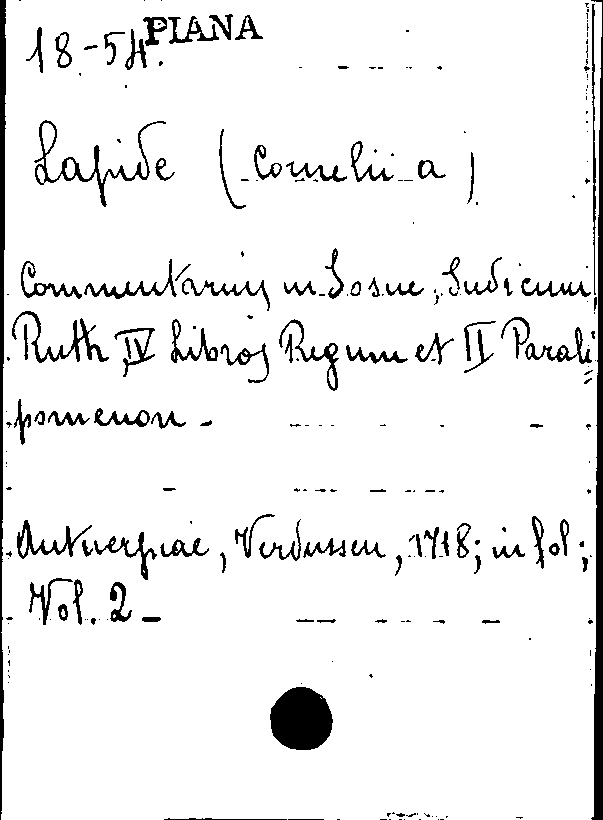 PIANA
18-54.
Lapide (Cornelii a)
Commentarius in Josue, Judicum,
Ruth, IV Libros Regum et II Parali
pomenon -
Antverpiae, Verdussen, 1718; in fol;
Vol. 2 -